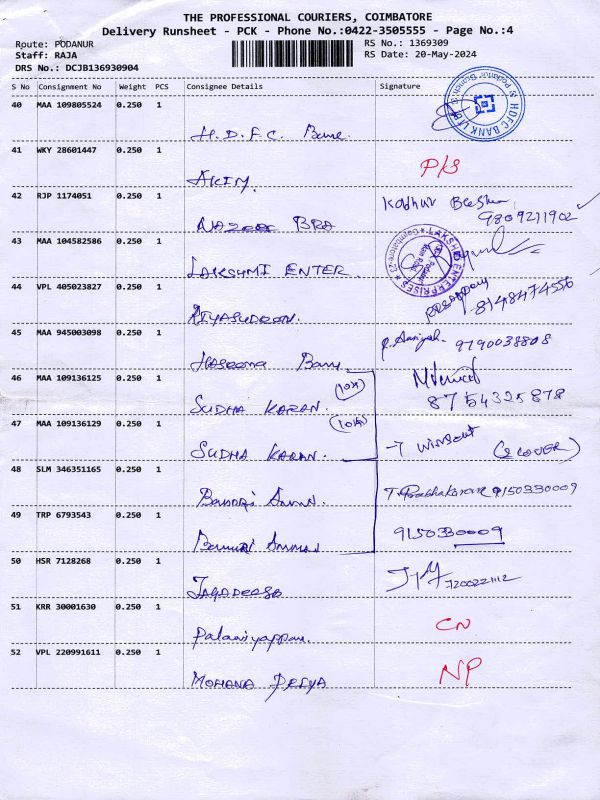 THE PROFESSIONAL COURIERS, COIMBATORE
Delivery Runsheet - PCK - Phone No.:0422-3505555 - Page No.:4
Route: PODANUR RS No.: 1369309
Staff: RAJA RS Date: 20-May-2024
DRS No.: DCJB136930904
S No Consignment No Weight PCS Consignee Details Signature
40 MAA 109805524 0.250 1
H.D.F.C. Bank
HDFC BANK
41 WKY 28601447 0.250 1
AKIM. P/S
42 RJP 1174051 0.250 1
BRA
9809211902
43 MAA 104582586 0.250 1
LAKSHMI ENTER.
LAKSHMI ENTERPRISES * Coimbatore-23 *
44 VPL 405023827 0.250 1
RIYASUDEEN. 8148474556
45 MAA 945003098 0.250 1
Haseena Banu 9790038808
46 MAA 109136125 0.250 1
SUDHA KARAN. 8754325878
47 MAA 109136129 0.250 1
SUDHA KARAN. (2 COVER)
48 SLM 346351165 0.250 1
T. Prabhakaran 9150330009
49 TRP 6793543 0.250 1
9150330009
50 HSR 7128268 0.250 1
51 KRR 30001630 0.250 1
Palaniyappan. CN
52 VPL 220991611 0.250 1
MOHANA PRIYA NP